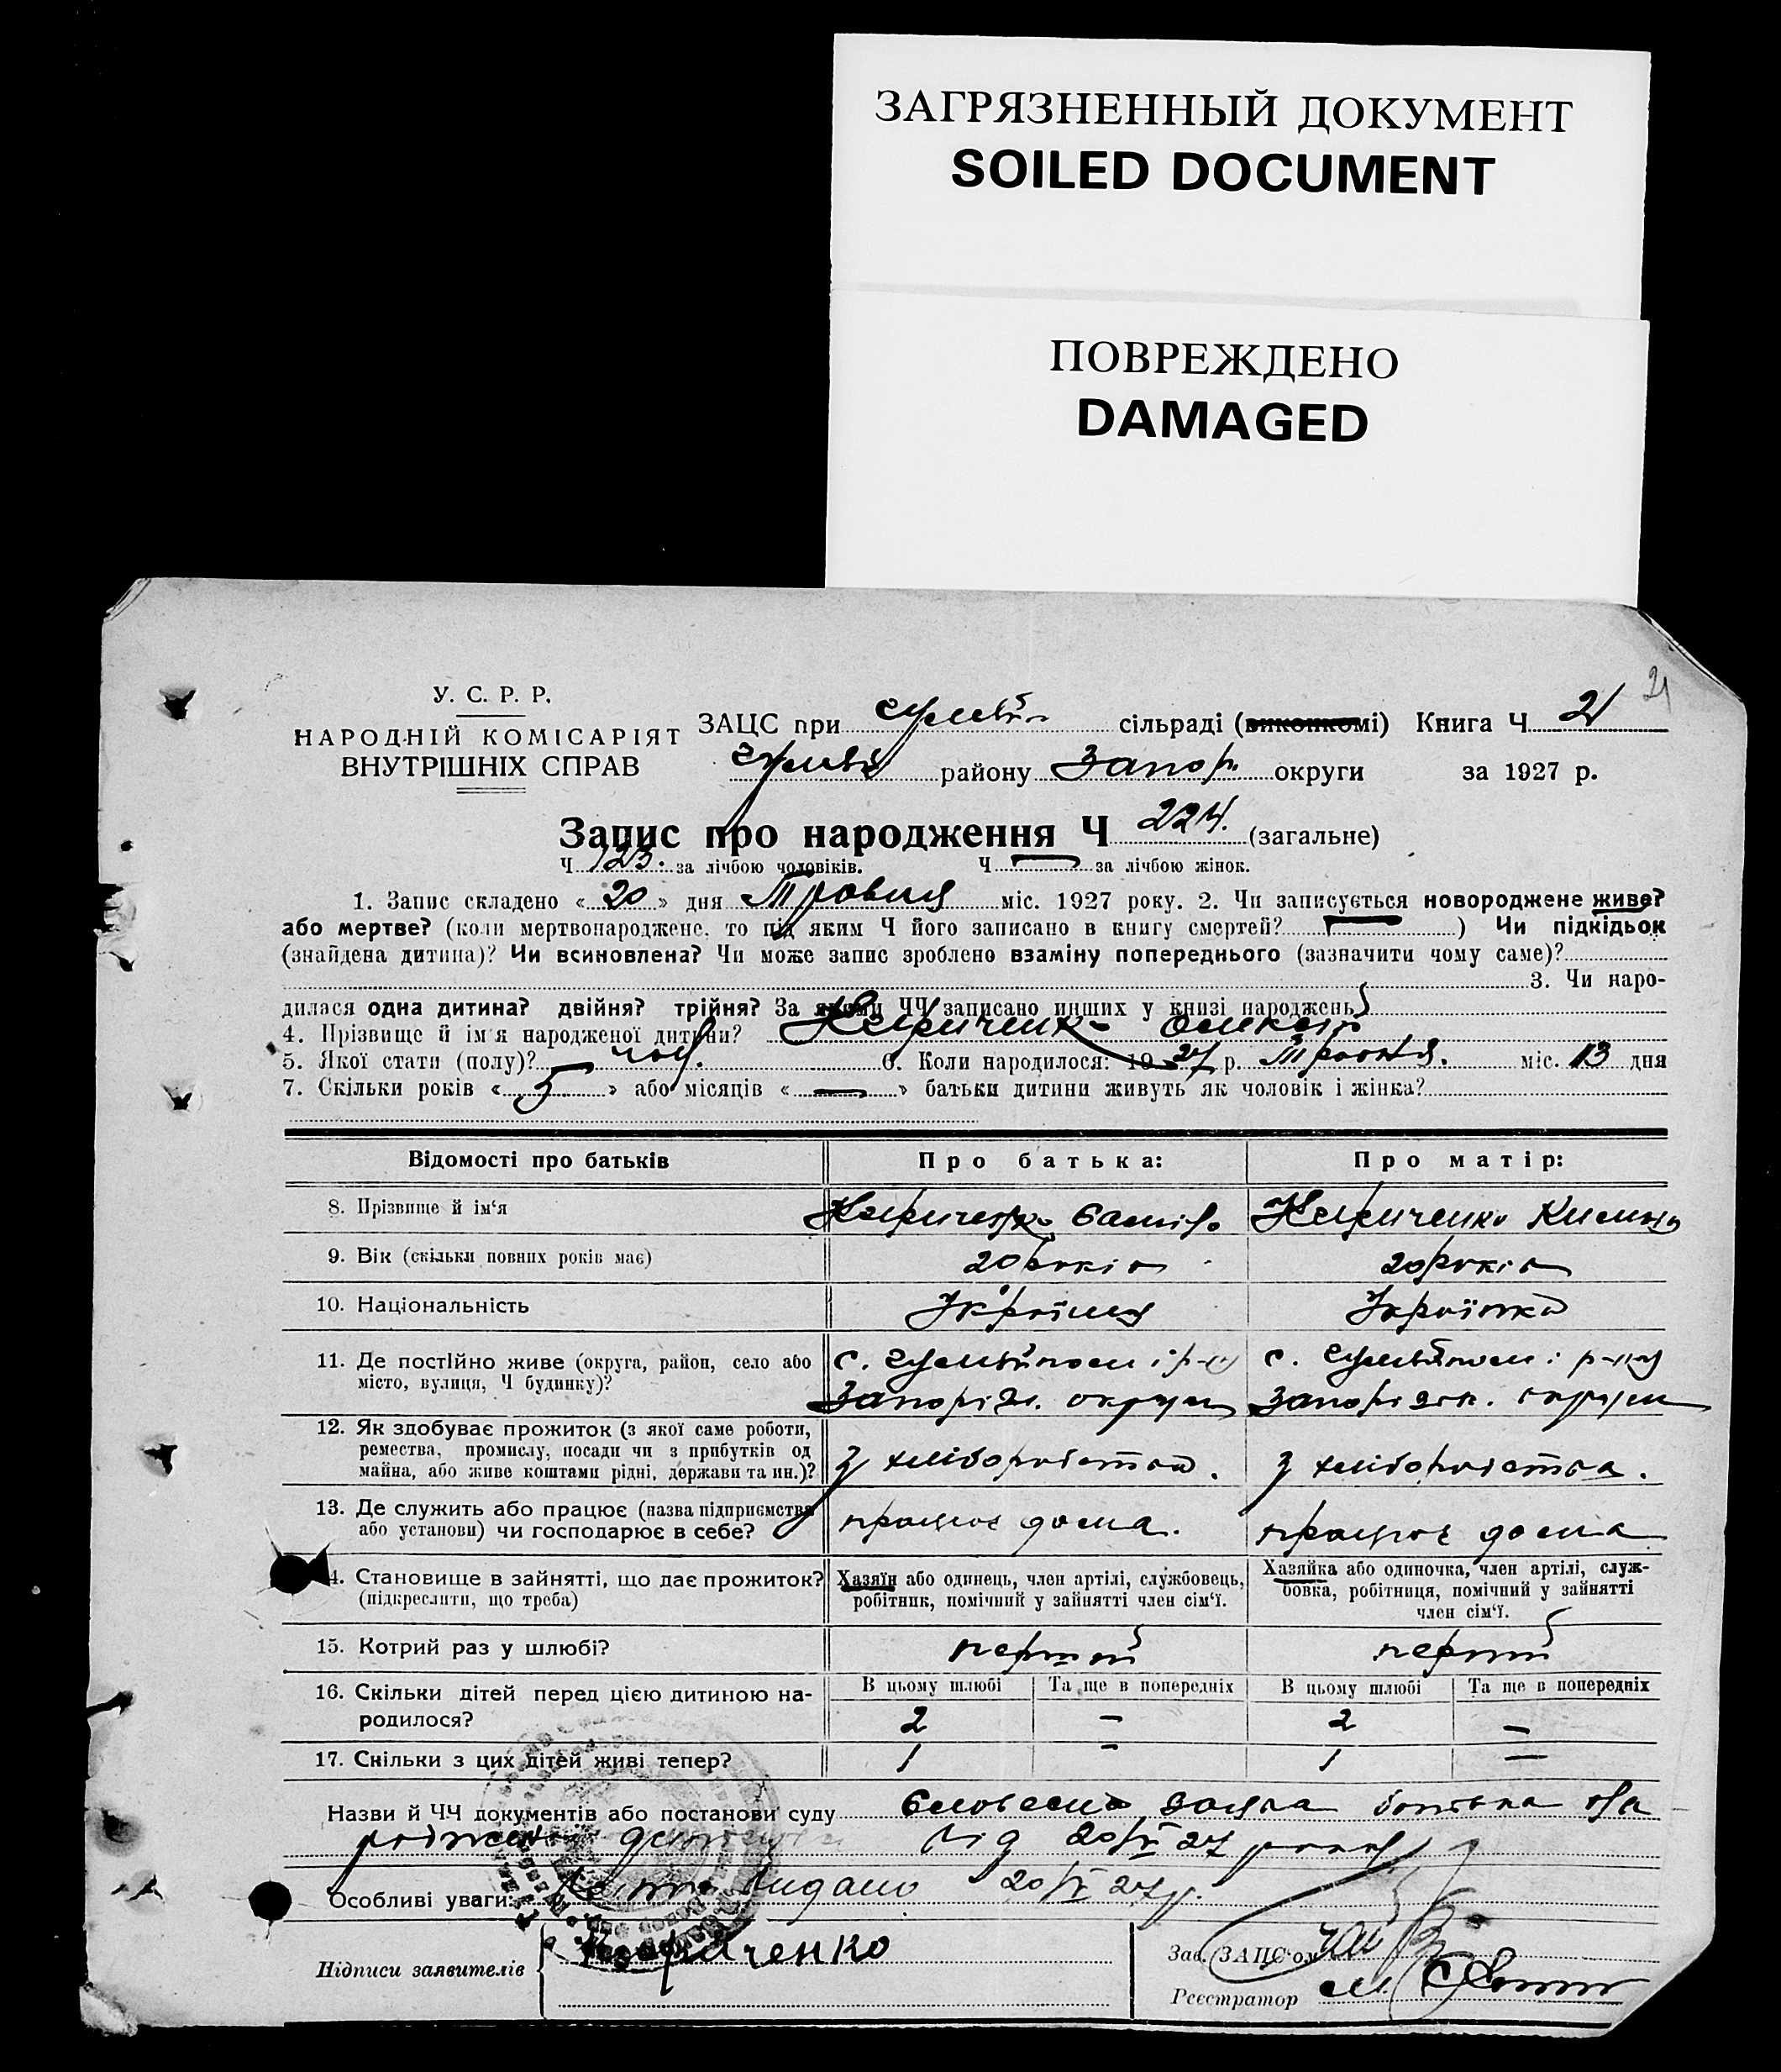 ЗАГРЯЗНЕННЫЙ ДОКУМЕНТ
SOILED DOCUMENT
ПОВРЕЖДЕНО
DAMAGED
21
У. С. Р. Р.
НАРОДНІЙ КОМІСАРІЯТ
ВНУТРІШНІХ СПРАВ
ЗАЦС при сільраді (виконкомі) Книга Ч 21
району Запор. округи за 1927 р.
Запис про народження Ч 224. (загальне)
Ч 123. за лічбою чоловіків. Ч за лічбою жінок.
1. Запис складено « 20 » дня Травня міс. 1927 року. 2. Чи записується новороджене живе?
або мертве? (коли мертвонароджене, то під яким Ч його записано в книгу смертей? ) Чи підкідьок
(знайдена дитина)? Чи всиновлена? Чи може запис зроблено взаміну попереднього (зазначити чому саме)?
3. Чи наро-
дилася одна дитина? двійня? трійня? За якими ЧЧ записано инших у книзі народжень
4. Прізвище й ім'я народженої дитини?
5. Якої стати (полу)? чол. 6. Коли народилося: 1927 р. Травня. міс. 13 дня
7. Скільки років « 5 » або місяців « — » батьки дитини живуть як чоловік і жінка?
Відомості про батьків Про батька: Про матір:
8. Прізвище й ім'я
9. Вік (скільки повних років має) 20 років 20 років
10. Національність Українця Українка
11. Де постійно живе (округа, район, село або
місто, вулиця, Ч будинку)?
с. і р-ну с. і р-ну
Запоріж. округи Запорізьк. округи
12. Як здобуває прожиток (з якої саме роботи,
ремества, промислу, посади чи з прибутків од
майна, або живе коштами рідні, держави та ин.)?
з хліборобства. з хліборобства.
13. Де служить або працює (назва підприємства
або установи) чи господарює в себе?
працює дома. працює дома
14. Становище в зайнятті, що дає прожиток?
(підкреслити, що треба)
Хазяїн або одинець, член артілі, службовець,
робітник, помічний у зайнятті член сім'ї.
Хазяйка або одиночка, член артілі, служ-
бовка, робітниця, помічний у зайнятті
член сім'ї.
15. Котрий раз у шлюбі? перший перший
16. Скільки дітей перед цією дитиною на-
родилося?
В цьому шлюбі Та ще в попередніх В цьому шлюбі Та ще в попередніх
2 — 2 —
17. Скільки з цих дітей живі тепер? 1 — 1 —
Назви й ЧЧ документів або постанови суду Словесна заява батька
від 20/V 27 року
Особливі уваги: видано 20/V 27 р.
Підписи заявителів Кириченко
Зав. ЗАЦС'ом
Реєстратор